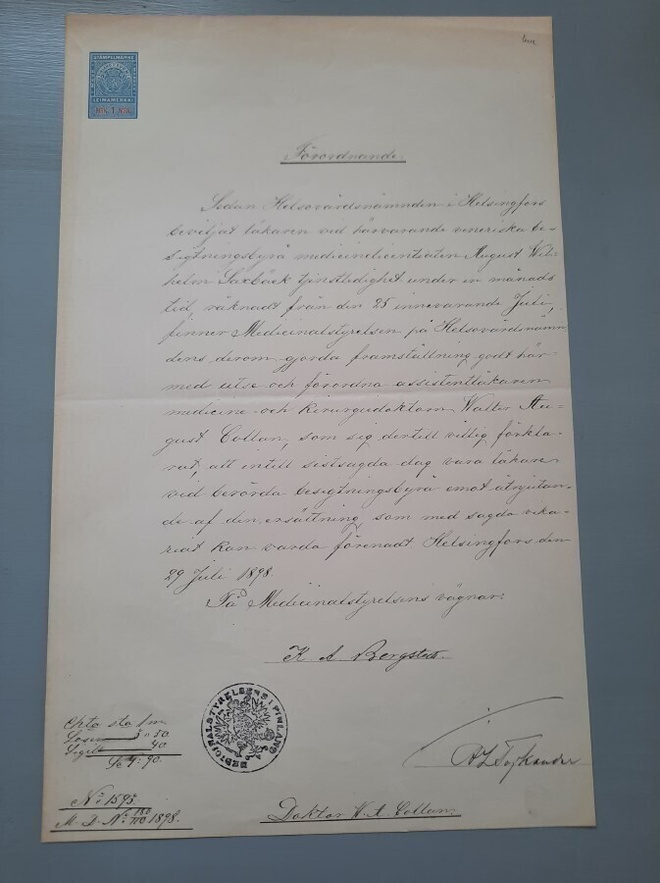 STÄMPELMÄRKE
LEIMAMERKKI
Förordnande.
Sedan Helsovårdsnämnden i Helsingfors
beviljat läkaren vid härvarande veneriska be-
sigtningsbyrå medicinelicentiaten August Wil-
helm Saxbäck tjenstledighet under en månads
tid, räknadt från den 25 innevarande Juli,
finner Medicinalstyrelsen på Helsovårdsnämn
dens derom gjorda framställning godt här-
med utse och förordna assistentläkaren
medicine och kirurgiedoktorn Walter Au-
gust Collan, som sig dertill villig förkla-
rat, att intill sistsagda dag vara läkare
vid berörda besigtningsbyrå emot åtnjutan-
de af den ersättning som med sagda vika-
riat kan varda förenadt Helsingfors den
29 Juli 1898.
På Medicinalstyrelsens vägnar:
K. A. Bergstad
MEDICINALSTYRELSENS I FINLAND
Chta sta 1 m
Lösen 3.50
Sigill 40
Nº 1595.
M. D. Nº 180/110 1898.
Doktor W. A. Collan.